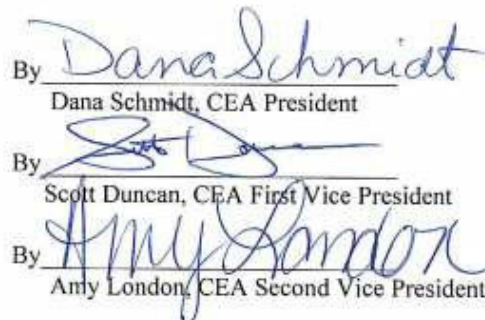 By Dana Schmidt
Dana Schmidt, CEA President
By Scott Duncan
Scott Duncan, CEA First Vice President
By Amy London
Amy London, CEA Second Vice President